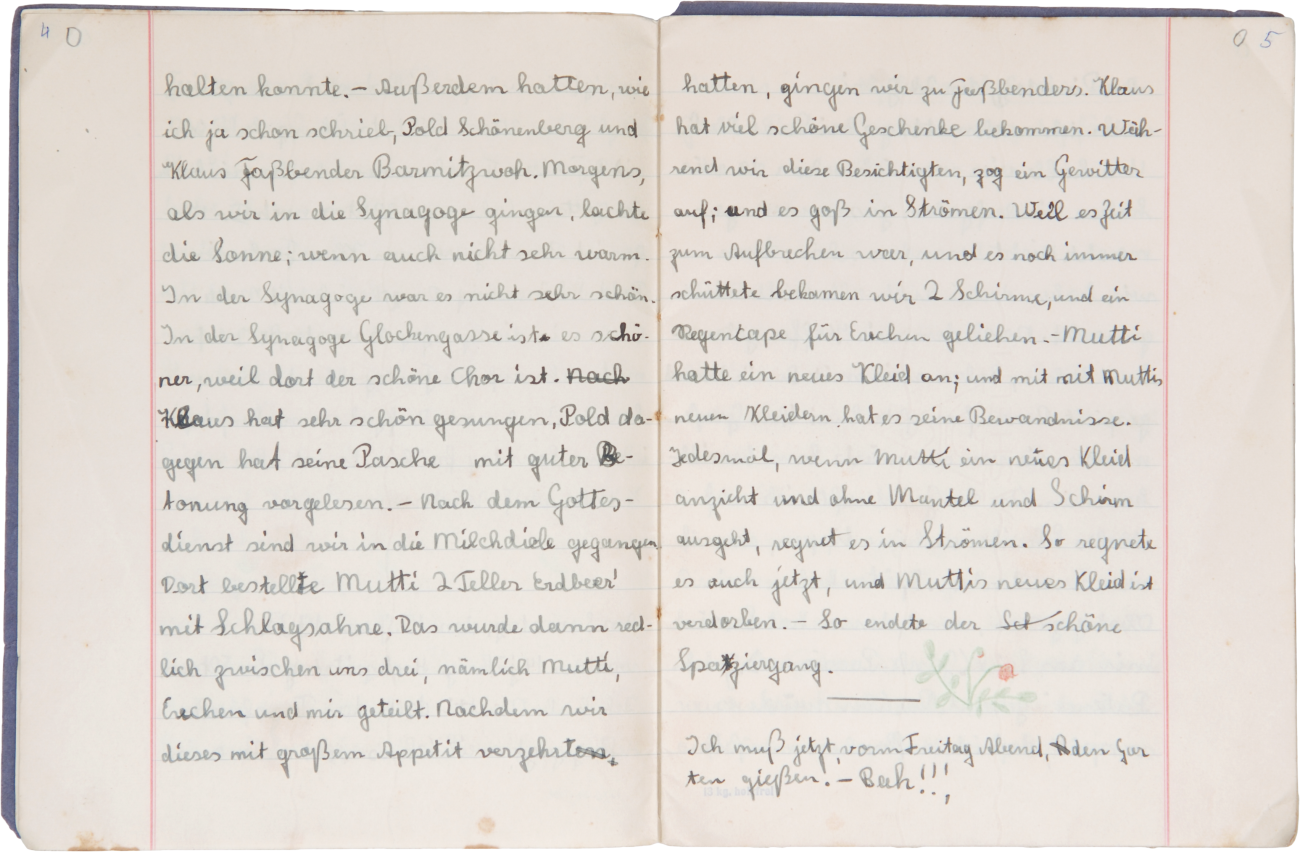 4
halten konnte. – Außerdem hatten, wie
ich ja schon schrieb, Pold Schönenberg und
Klaus Faßbender Barmitzwoh. Morgens,
als wir in die Synagoge gingen, lachte
die Sonne; wenn auch nicht sehr warm.
In der Synagoge war es nicht sehr schön.
In der Synagoge Glockengasse ist es schö-
ner, weil dort der schöne Chor ist. Nach
Klaus hat sehr schön gesungen, Pold da-
gegen hat seine Pasche mit guter Be-
tonung vorgelesen. – Nach dem Gottes-
dienst sind wir in die Milchdiele gegangen
Dort bestellte Mutti 2 Teller Erdbeer'
mit Schlagsahne. Das wurde dann red-
lich zwischen uns drei, nämlich Mutti,
Evchen und mir geteilt. Nachdem wir
dieses mit großem Appetit verzehrten,
5
hatten, gingen wir zu Faßbenders. Klaus
hat viel schöne Geschenke bekommen. Wäh-
rend wir diese Besichtigten, zog ein Gewitter
auf; und es goß in Strömen. Weil es Zeit
zum Aufbrechen war, und es noch immer
schüttete bekamen wir 2 Schirme, und ein
Regencape für Evchen geliehen. – Mutti
hatte ein neues Kleid an; und mit mit Muttis
neuen Kleidern hat es seine Bewandnisse.
Jedesmal, wenn Mutti ein neues Kleid
anzieht und ohne Mantel und Schirm
ausgeht, regnet es in Strömen. So regnete
es auch jetzt, und Muttis neues Kleid ist
verdorben. – So endete der Sch schöne
Spaziergang.
Ich muß jetzt, vorm Freitag Abend, den Gar
ten gießen. – Bah!!!,